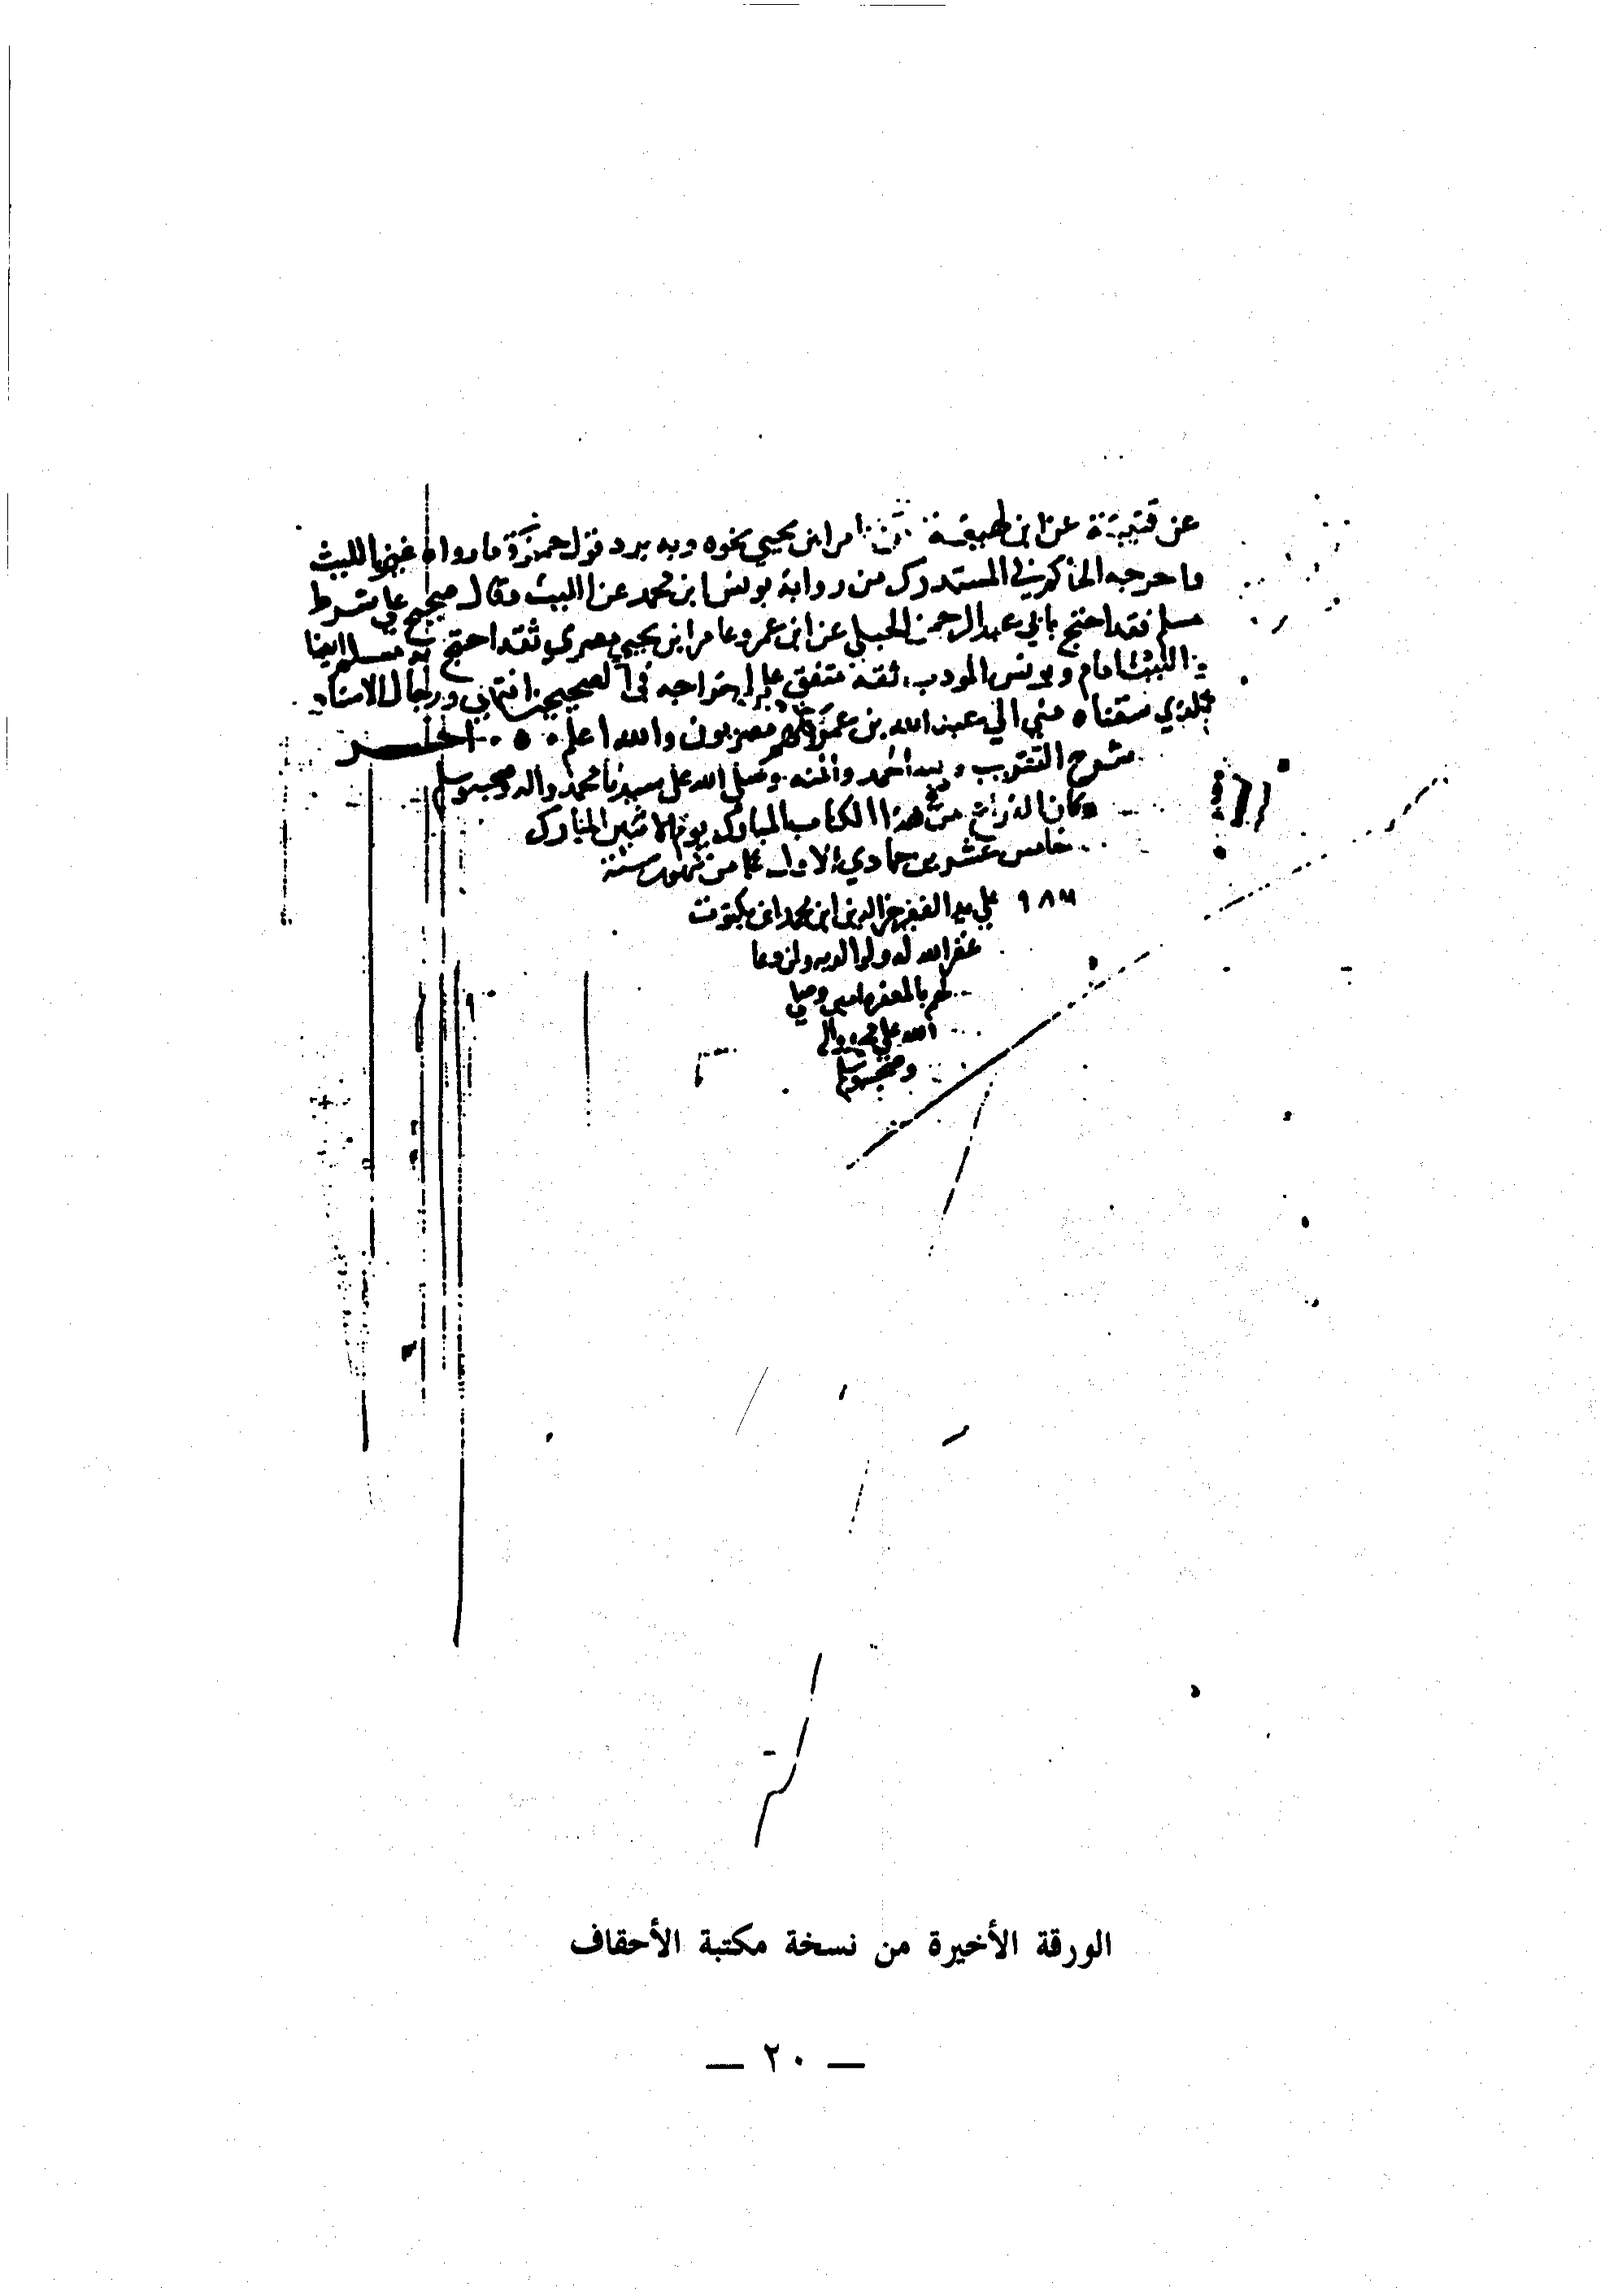 عن قتيبة عن ابن لهيعة عن عامر ابن يحيي نحوه وبه يرد قول حمزة ما رواه غير الليث
واخرجه الحاكم في المستدرك من رواية يونس ابن محمد عن الليث وقال صحيح علي شرط
مسلم فقد احتج بابي عبد الرحمن الحبلي عن ابن عمرو وعامر ابن يحيي مصري ثقة احتج به مسلم ايضا
والليث امام ويونس المودب ثقة متفق علي اخراجه في الصحيحين انتهي ورجال الاسناد
الذي سقناه مني الي عبد الله بن عمرو كلهم مصريون والله اعلم اخر
شرح التقريب ولله الحمد والمنة وصلي الله علي سيدنا محمد واله وصحبه وسلم
وكان الفراغ من هذا الكتاب المبارك يوم الاثنين المبارك
خامس عشرين جمادي الاول من شهور سنة
علي يد الفقير ابن محمد ابن
غفر الله له ولوالديه ولمن دعا
لهم بالمغفرة امين وصلي
الله علي محمد واله
وصحبه وسلم
الورقة الأخيرة من نسخة مكتبة الأحقاف
— ٢٠ —